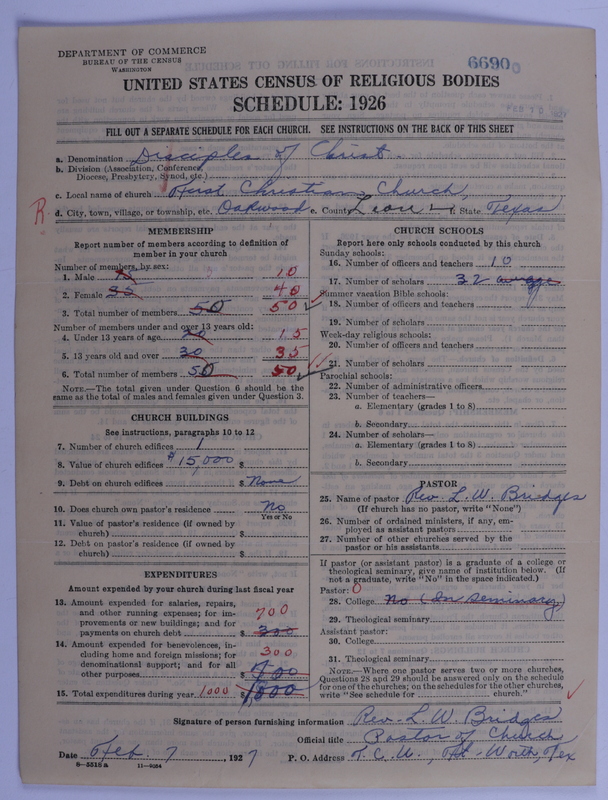 DEPARTMENT OF COMMERCE
BUREAU OF THE CENSUS
WASHINGTON
6690
UNITED STATES CENSUS OF RELIGIOUS BODIES
SCHEDULE: 1926
FEB 10
FILL OUT A SEPARATE SCHEDULE FOR EACH CHURCH. SEE INSTRUCTIONS ON THE BACK OF THIS SHEET
a. Denomination Disciples of Christ
b. Division (Association, Conference, Diocese, Presbytery, Synod, etc.)
c. Local name of church First Christian Church
R
d. City, town, village, or township, etc. Oakwood e. County Leon f. State Texas
MEMBERSHIP
Report number of members according to definition of member in your church
Number of members, by sex:
1. Male 10
2. Female 40
3. Total number of members 50 50
Number of members under and over 13 years old:
4. Under 13 years of age 20 15
5. 13 years old and over 30 35
6. Total number of members 50 50
NOTE.—The total given under Question 6 should be the same as the total of males and females given under Question 3.
CHURCH BUILDINGS
See instructions, paragraphs 10 to 12
7. Number of church edifices 1
8. Value of church edifices $15,000 $
9. Debt on church edifices $ None
10. Does church own pastor's residence No
Yes or No
11. Value of pastor's residence (if owned by church) $
12. Debt on pastor's residence (if owned by church) $
EXPENDITURES
Amount expended by your church during last fiscal year
13. Amount expended for salaries, repairs, and other running expenses; for improvements or new buildings; and for payments on church debt $ 700
14. Amount expended for benevolences, including home and foreign missions; for denominational support; and for all other purposes $ 300 700
15. Total expenditures during year 1000 $ 1000
CHURCH SCHOOLS
Report here only schools conducted by this church
Sunday schools:
16. Number of officers and teachers 10
17. Number of scholars 32 average
Summer vacation Bible schools:
18. Number of officers and teachers
19. Number of scholars
Week-day religious schools:
20. Number of officers and teachers
21. Number of scholars
Parochial schools:
22. Number of administrative officers
23. Number of teachers—
a. Elementary (grades 1 to 8)
b. Secondary
24. Number of scholars—
a. Elementary (grades 1 to 8)
b. Secondary
PASTOR
25. Name of pastor Rev. L. W. Bridges
(If church has no pastor, write "None")
26. Number of ordained ministers, if any, employed as assistant pastors
27. Number of other churches served by the pastor or his assistants
If pastor (or assistant pastor) is a graduate of a college or theological seminary, give name of institution below. (If not a graduate, write "No" in the space indicated.)
Pastor: 0
28. College No (In seminary)
29. Theological seminary
Assistant pastor:
30. College
31. Theological seminary
NOTE.—Where one pastor serves two or more churches, Questions 28 and 29 should be answered only on the schedule for one of the churches; on the schedules for the other churches, write "See schedule for church."
Signature of person furnishing information Rev. L. W. Bridges
Official title Pastor of Church
Date Feb. 7, 1927 P. O. Address T. C. U., Ft. Worth, Tex
8—5518 a 11—9034